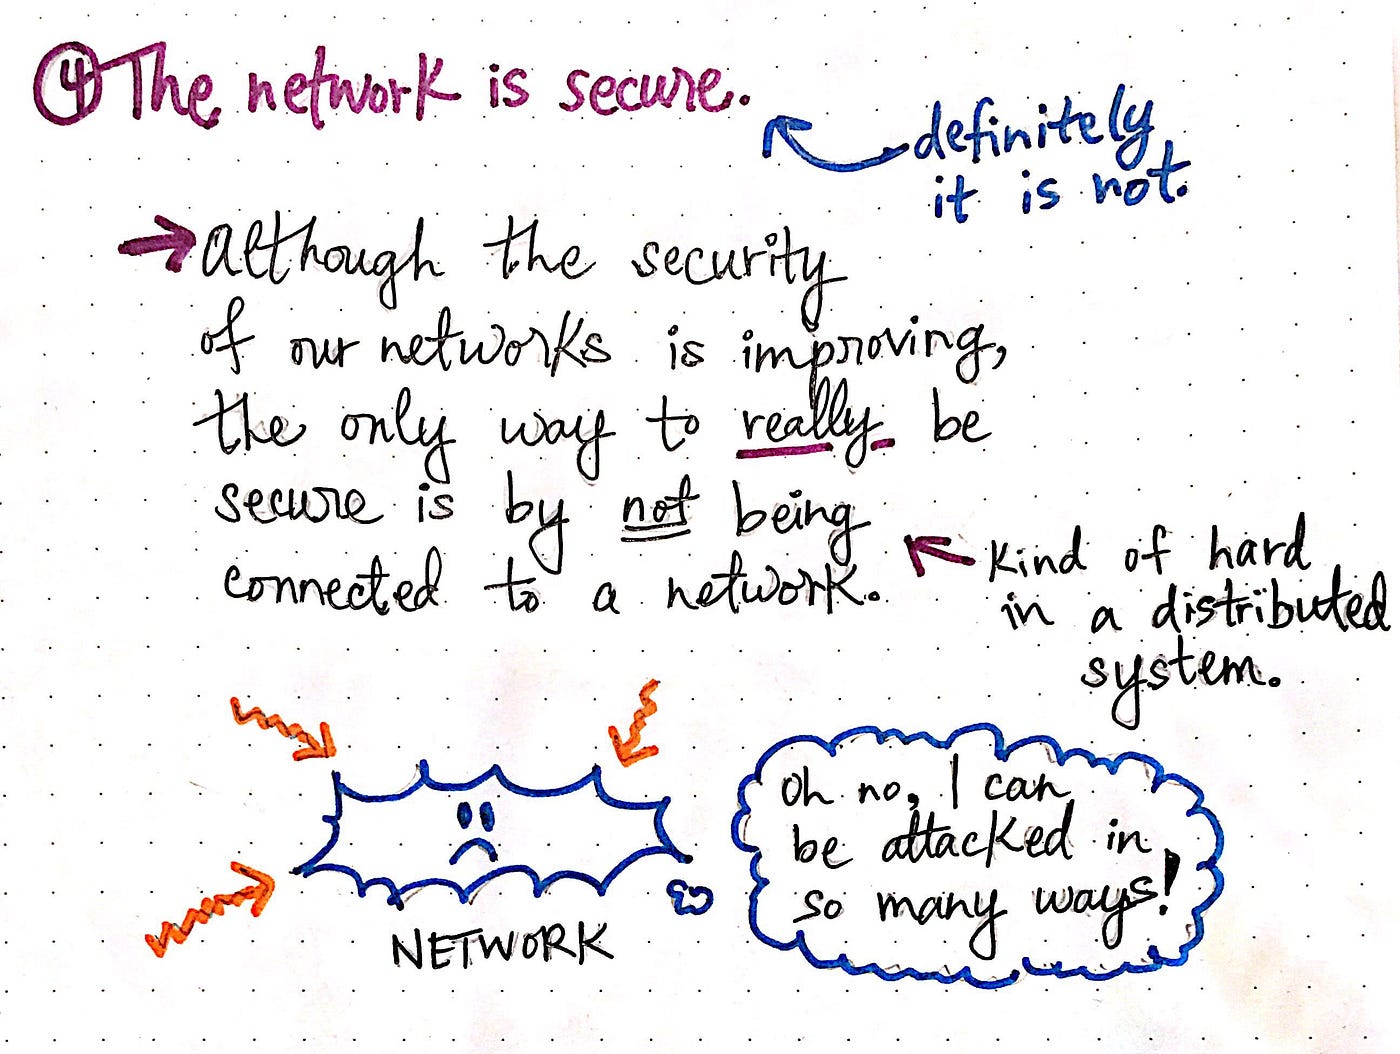 4 The network is secure.
definitely
it is not.
Although the security
of our networks is improving,
the only way to really be
secure is by not being
connected to a network.
Kind of hard
in a distributed
system.
Oh no, I can
be attacked in
so many ways!
NETWORK